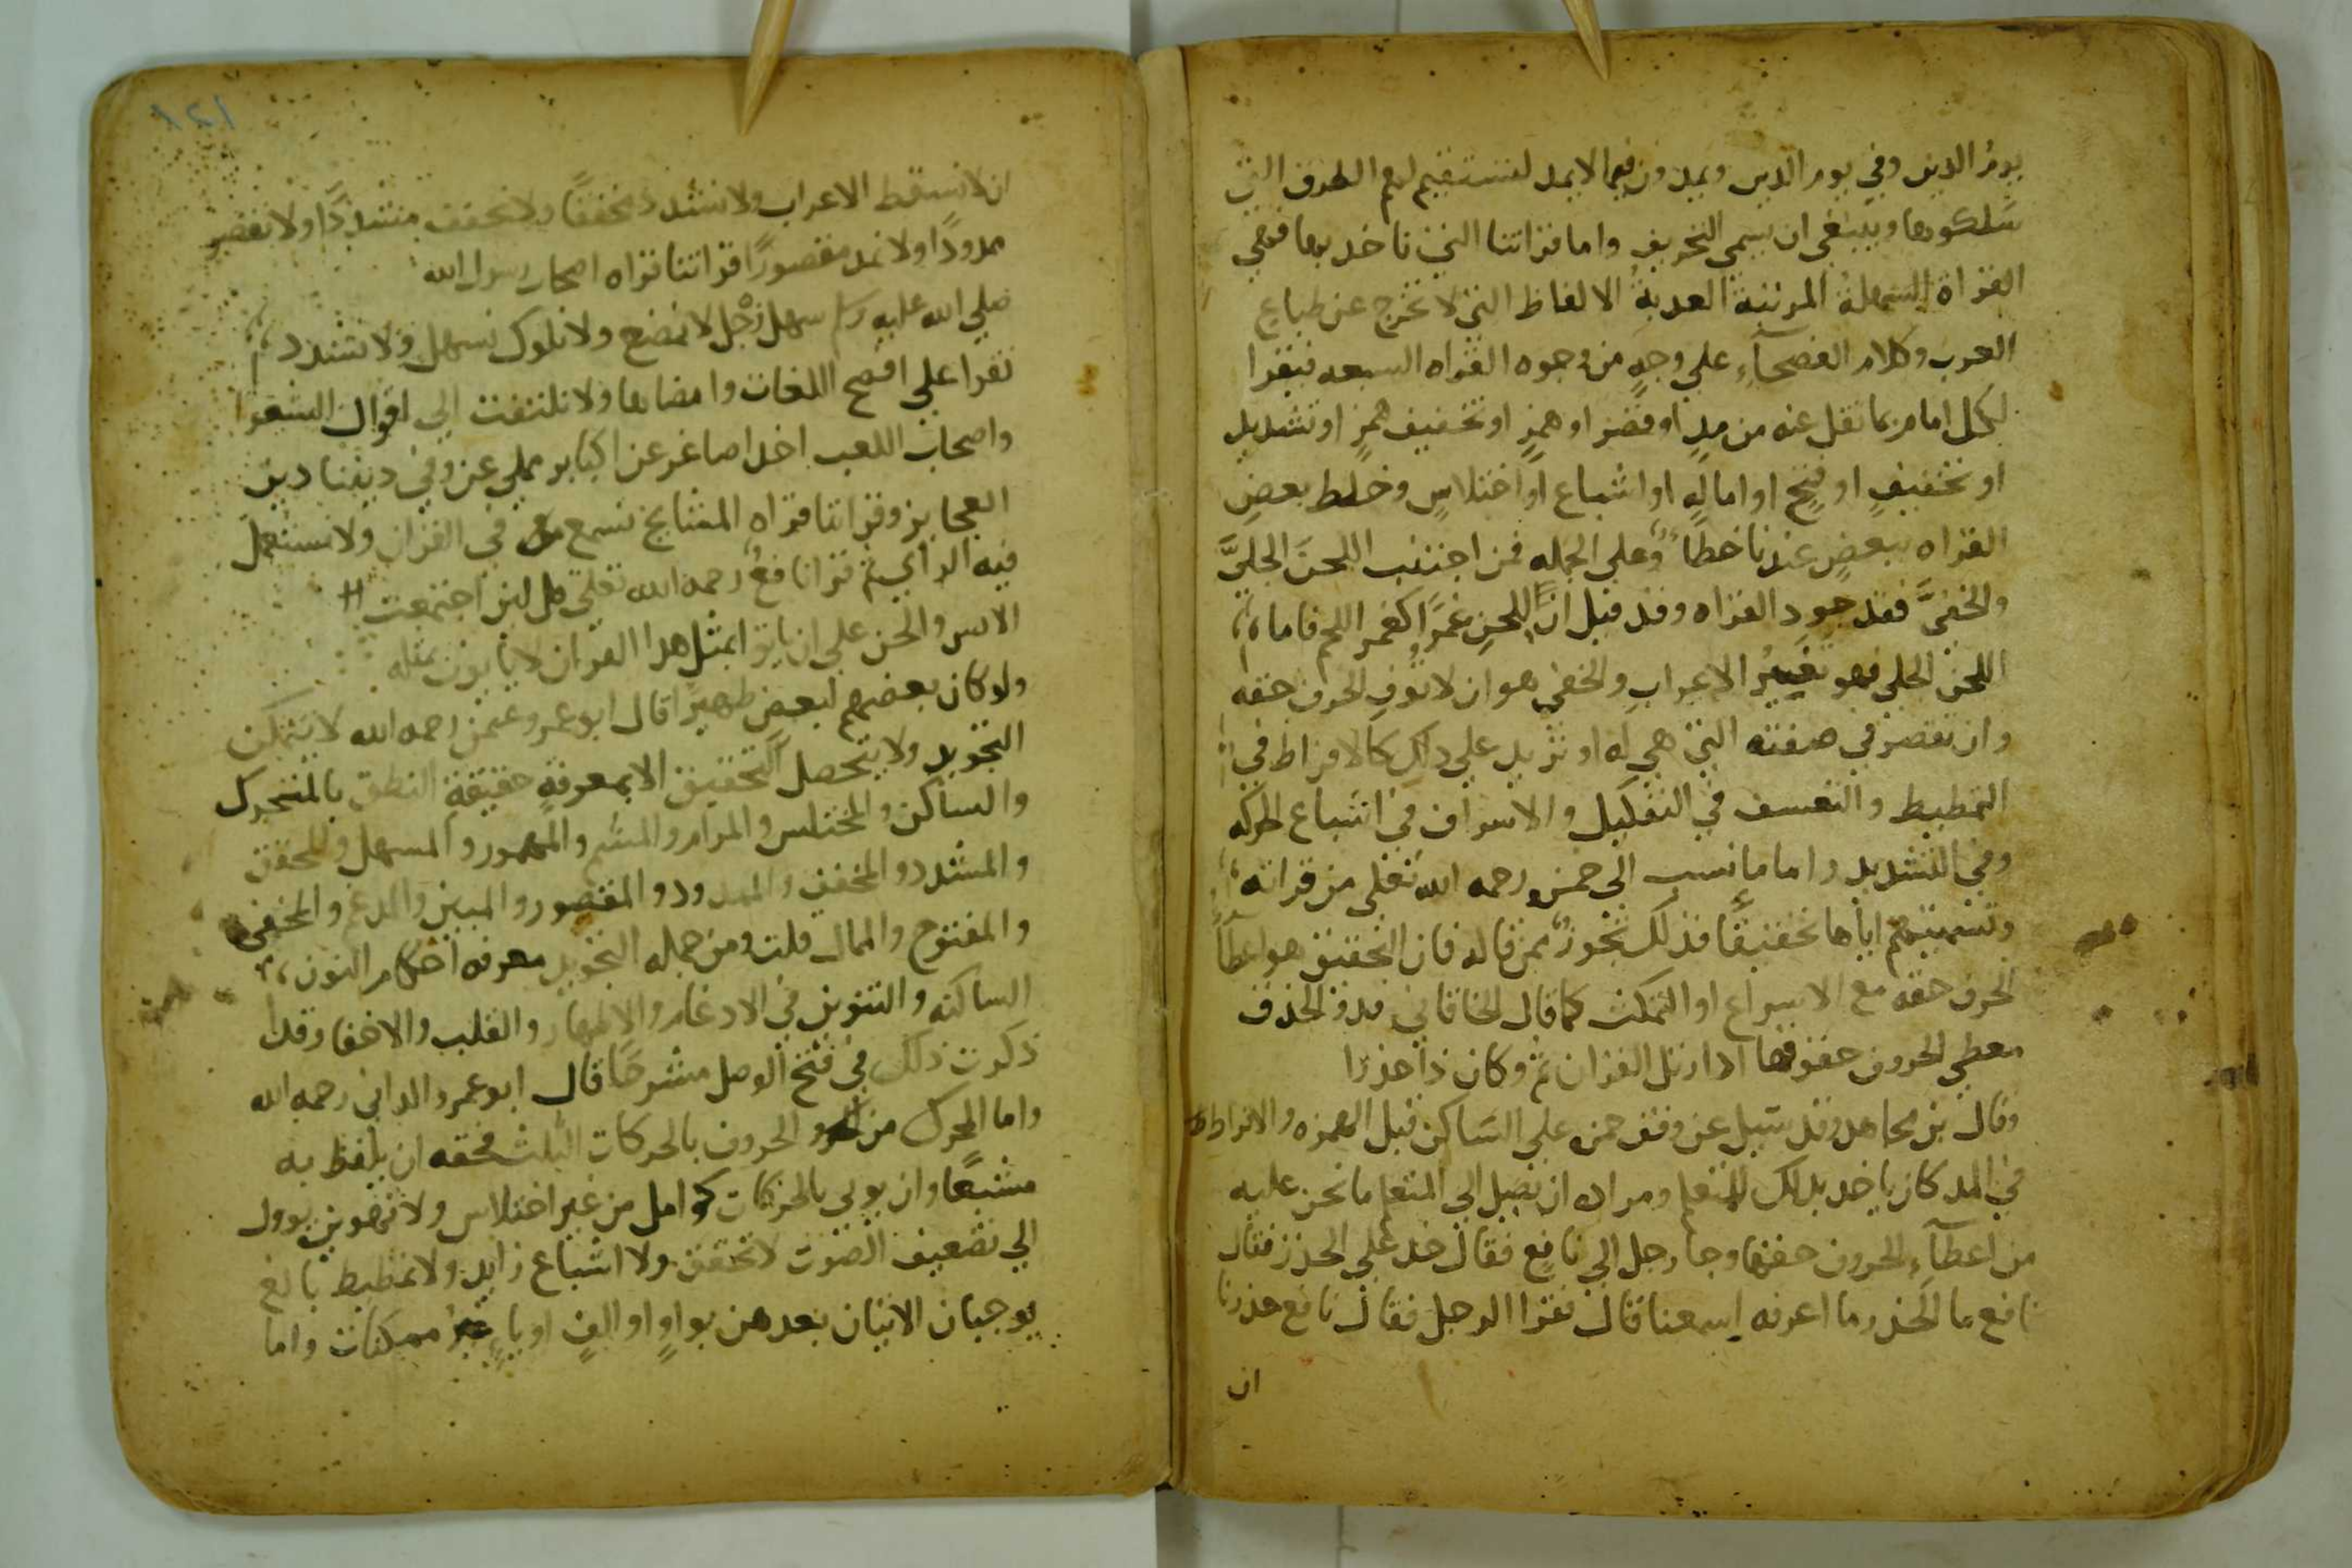 يوم الدين وفي يوم الدين ويمدون فيما لا يمد لتستقيم لهم الطرق التي
سلكوها وينبغي ان يسمى التحريف واما قراتنا التي ناخد بها فهي
القراة السهلة المرتلة العدبة الالفاظ التي لا تخرج عن طباع
العرب وكلام الفصحآء علي وجه من وجوه القراه السبعه فيقرا
لكل امام بما نقل عنه من مدٍ او قصر او همزٍ او تخفيف همزٍ او تشديد
او تخفيفٍ او فتحٍ او امالهٍ او اشباع او اختلاسٍ وخلط بعضِ
القراه ببعضٍ عندنا خطاً وعلي الجمله فمن اجتنب اللحنَ الجليَّ
والخفيَّ فقد جود القراه وقد قيل ان للحن غمرًا كغمر اللحم فاما
اللحن الجلي فهو تغيير الاعرابِ والخفي هو ان لا توفِ الحرف حقه
وان تقصر في صفته التي هي له او تزيد علي دلك كالافراط في
التمطيط والتعسف في التفكيك والاسراف في اشباع الحركه
وفي التشديد واما ما نسب الي حمزه رحمه الله تعلي من قراته
وتسميتهم اياها تحقيقًا فذلك تجوزٌ ممن قاله فان التحقيق هو اعطآ
الحرف حقه مع الاسراع او التمكث كما قال الخاقاني فدو الحذق
معطي الحروف حقوقها ادا رتل القران ثم وكان ذا حذرا
وقال بن مجاهد وقد سيل عن وقف حمزه علي السَاكن قبل الهمزه والافراط
في المد كان ياخد بدلك المتعلم ومراده ان يصل الي المتعلم ما نحن عليه
من اعطآء الحروف حقها وجا رجل الي نافع فقال خد علي الحدر فقال
نافع ما الحَدر ما اعرفه اسمعنا قال فقرا الرجل فقال نافع حدرنا
ان
١٢١
ان لا نسقط الاعراب ولا نشدد مخففًا ولا نخفف مشددًا ولا نقصر
ممدودًا ولا نمد مقصورًا قراتنا قراه اصحاب رسول الله
صلي الله عليه وسلم سهل جزل لا نمضع ولا نلوك نسهل ولا نشدد
نقرا علي افصح اللغات وامضاها ولا نلتفت الي اقوال الشعرا
واصحاب اللعب اخد اصاغر عن اكابر ملي عن وفي ديننا دين
العجايز وقراتنا قراه المشايخ نسمع في القران ولا نستعمل
فيه الراي ثم قرا نافعٌ رحمه الله تعلي قل لين اجتمعت
الانس والجن علي ان ياتوا بمثل هدا القران لا ياتون بمثله
ولو كان بعضهم لبعض ظهيرًا قال ابو عمرو عثمن رحمه الله لا يتمكن
التجويد ولا يتحصل التحقيق الا بمعرفةِ حقيقة النطق بالمتحرك
والساكن والمختلس والمرام والمشم والمهموز والمسهل والمحقق
والمشدد والمخفف والممدود والمقصور والمبين والمدغم والمخفي
والمفتوح والممال قلت ومن جمله التجويد معرفه احكام النون
الساكنه والتنوين في الادغام والاظهار والقلب والاخفا وقد
ذكرت ذلك في فتح الوصل مشرحًا قال ابو عمرو الداني رحمه الله
واما المحرك من الحروف بالحركات الثلث فحقه ان يلفظ به
مشبعًا وان يوتي بالحركات كوامل من غير اختلاس ولا توهين يوول
الي تضعيف الصوت لا تحقق ولا اشباع زايد ولا تمطيط بالغ
يوجبان الاتيان بعدهن بواوٍ او الفٍ او ياءٍ غير ممكنات واما